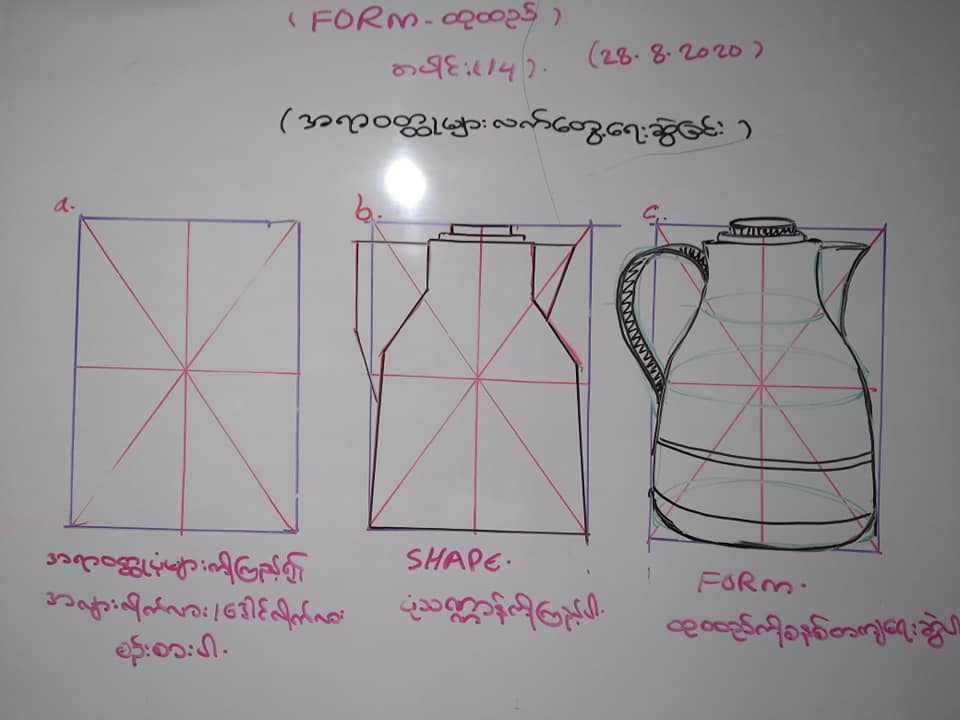 ( FORM - ထုထည် )
အပိုင်း(1/4). (28.8.2020)
(အရာဝတ္ထုများလက်တွေ့ရေးဆွဲခြင်း)
a. b. c.
အရာဝတ္ထုပုံများကိုကြည့်၍
အလျားလိုက်လား/ဒေါင်လိုက်လား
စဉ်းစားပါ.
SHAPE.
ပုံသဏ္ဍာန်ကိုကြည့်ပါ.
FORM.
ထုထည်ကိုစနစ်တကျရေးဆွဲပါ